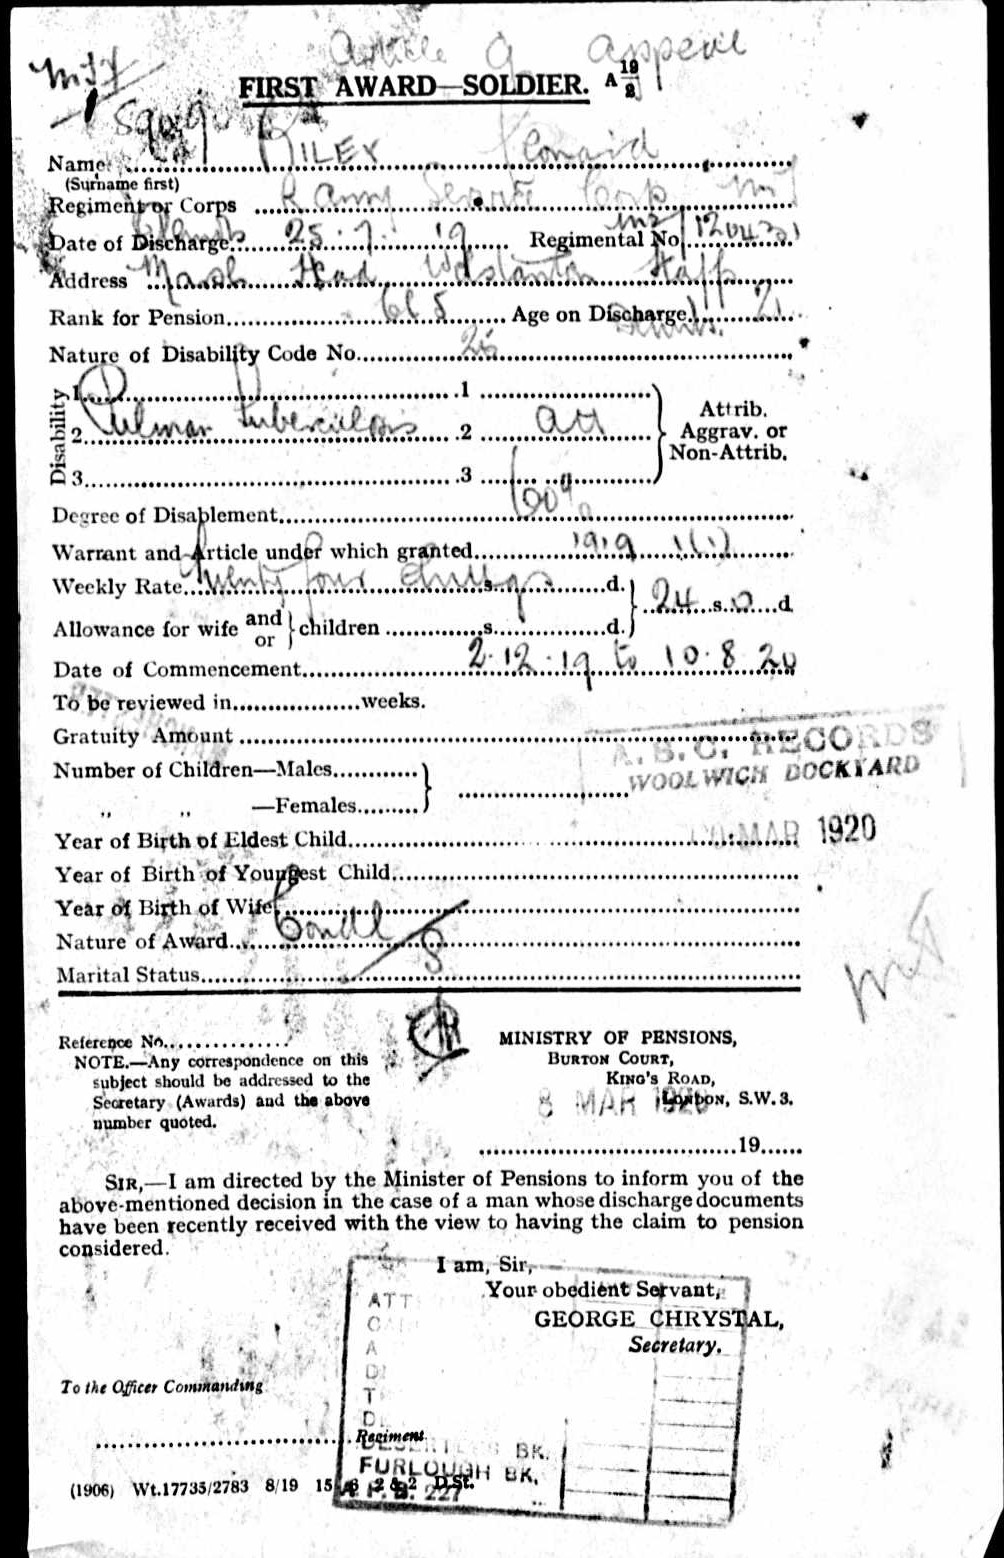 Article 9 appeal
FIRST AWARD—SOLDIER. A 19/2
Name RILEY Leonard
(Surname first)
Regiment or Corps R Army Service Corps MT
Date of Discharge 25.7.19 Regimental No.
Address Marsh Head Wolstanton Staffs
Rank for Pension Cl 5 Age on Discharge 21
Nature of Disability Code No. 26
Disability
1 1
2 Pulmar Tuberculosis 2 att
3 3
Attrib.
Aggrav. or
Non-Attrib.
Degree of Disablement 60%
Warrant and Article under which granted 1919 1(1)
Weekly Rate Twenty four shillings s. d. } 24 s. 0 d.
Allowance for wife and or } children s. d.
Date of Commencement 2.12.19 to 10.8.20
To be reviewed in weeks.
Gratuity Amount
A.S.C. RECORDS
WOOLWICH DOCKYARD
Number of Children—Males
,, ,, —Females
MAR 1920
Year of Birth of Eldest Child
Year of Birth of Youngest Child
Year of Birth of Wife
Nature of Award Condl
Marital Status S
Reference No.
NOTE.—Any correspondence on this
subject should be addressed to the
Secretary (Awards) and the above
number quoted.
MINISTRY OF PENSIONS,
BURTON COURT,
KING'S ROAD,
LONDON, S.W.3.
8 MAR 1920
19
SIR,—I am directed by the Minister of Pensions to inform you of the
above-mentioned decision in the case of a man whose discharge documents
have been recently received with the view to having the claim to pension
considered.
I am, Sir,
Your obedient Servant,
GEORGE CHRYSTAL,
Secretary.
To the Officer Commanding
Regiment
BK.
FURLOUGH BK.
A.F.B. 227
(1906) Wt.17735/2783 8/19 D.St.